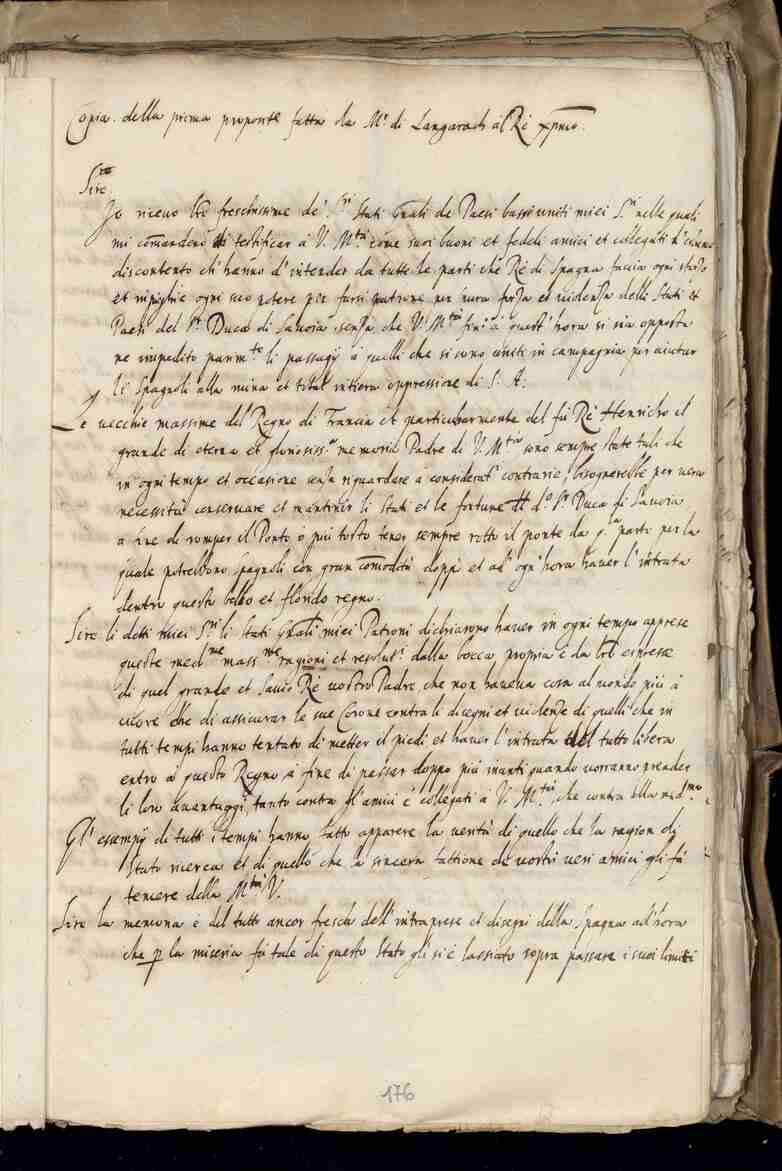 Copia della prima proposte fatta da Mr. di Langarach al Rè xpmo.
Sire
Io riceuo lre freschissime de' Sri Stati Gnali de Paesi bassi uniti miei Sri nelle quali
mi comandero di testificar à V. Mtà come suoi buoni et fedeli amici et collegati
discontento ch' hanno d' intender da tutte le parti che Rè di Spagna faccia ogni sforzo
et impieghi ogni suo potere per farsi patrone per pura forza et uidenza delli Stati et
Paesi del Sr. Duca di Sauoia senza che V. Mtà fin' à quest' hora si sia opposta
ne impedito parimte li passagij à quelli che si sono uniti in campagnia per aiutar
li Spagnoli alla ruina et total intiera oppressione di S. A:
Le uecchie massime del Regno di Francia et particularmente del fù Rè Henricho il
grande di eterna et gloriosissa memoria Padre di V. Mtà sono sempre state tali che
in ogni tempo et occasione senza riguardare à considerat. contrarie, bisognerebbe per uera
necessità conseruare et mantiner li Stati et le fortune di do Sr Duca di Sauoia
a fine di romper il Ponto ò più tosto tener sempre rotto il ponte da q.ta parte per la
quale potrebbono Spagnoli con gran comodità doppi et ad' ogn' hora hauer l' intrata
dentro questo bello et florido regno.
Sire li detti miei Sri li Stati Gnali miei Patroni dichiarono hauer in ogni tempo apprese
queste medme massme ragioni et resolut. dalla bocca propria e da lre espresse
di quel grande et Sauio Rè uostro Padre che non haueua cosa al mondo più à
cuore che di assicurar le sue Corone contra li disegni et uidenze di quelli che in
tutti tempi hanno tentato di metter il piedi et hauer l' intrata del tutto libera
entro à questo Regno à fine di passar doppo più inanti quando uorranno prender
li loro auantaggi, tanto contra gl' amici e collegati à V. Mtà che contra ella medma
Gl' essempij di tutti i tempi hanno fatto apparere la uerità di quello che la ragion di
stato ricerca et di quello che la sincera fattione de uostri ueri amici gli fà
temere della Mtà V.
Sire la memoria è del tutto ancor fresca dell' intraprese et disegni della Spagna all' hora
che p la miseria fatale di questo Stato gli si è lassiato sopra passare i suoi limitti
176